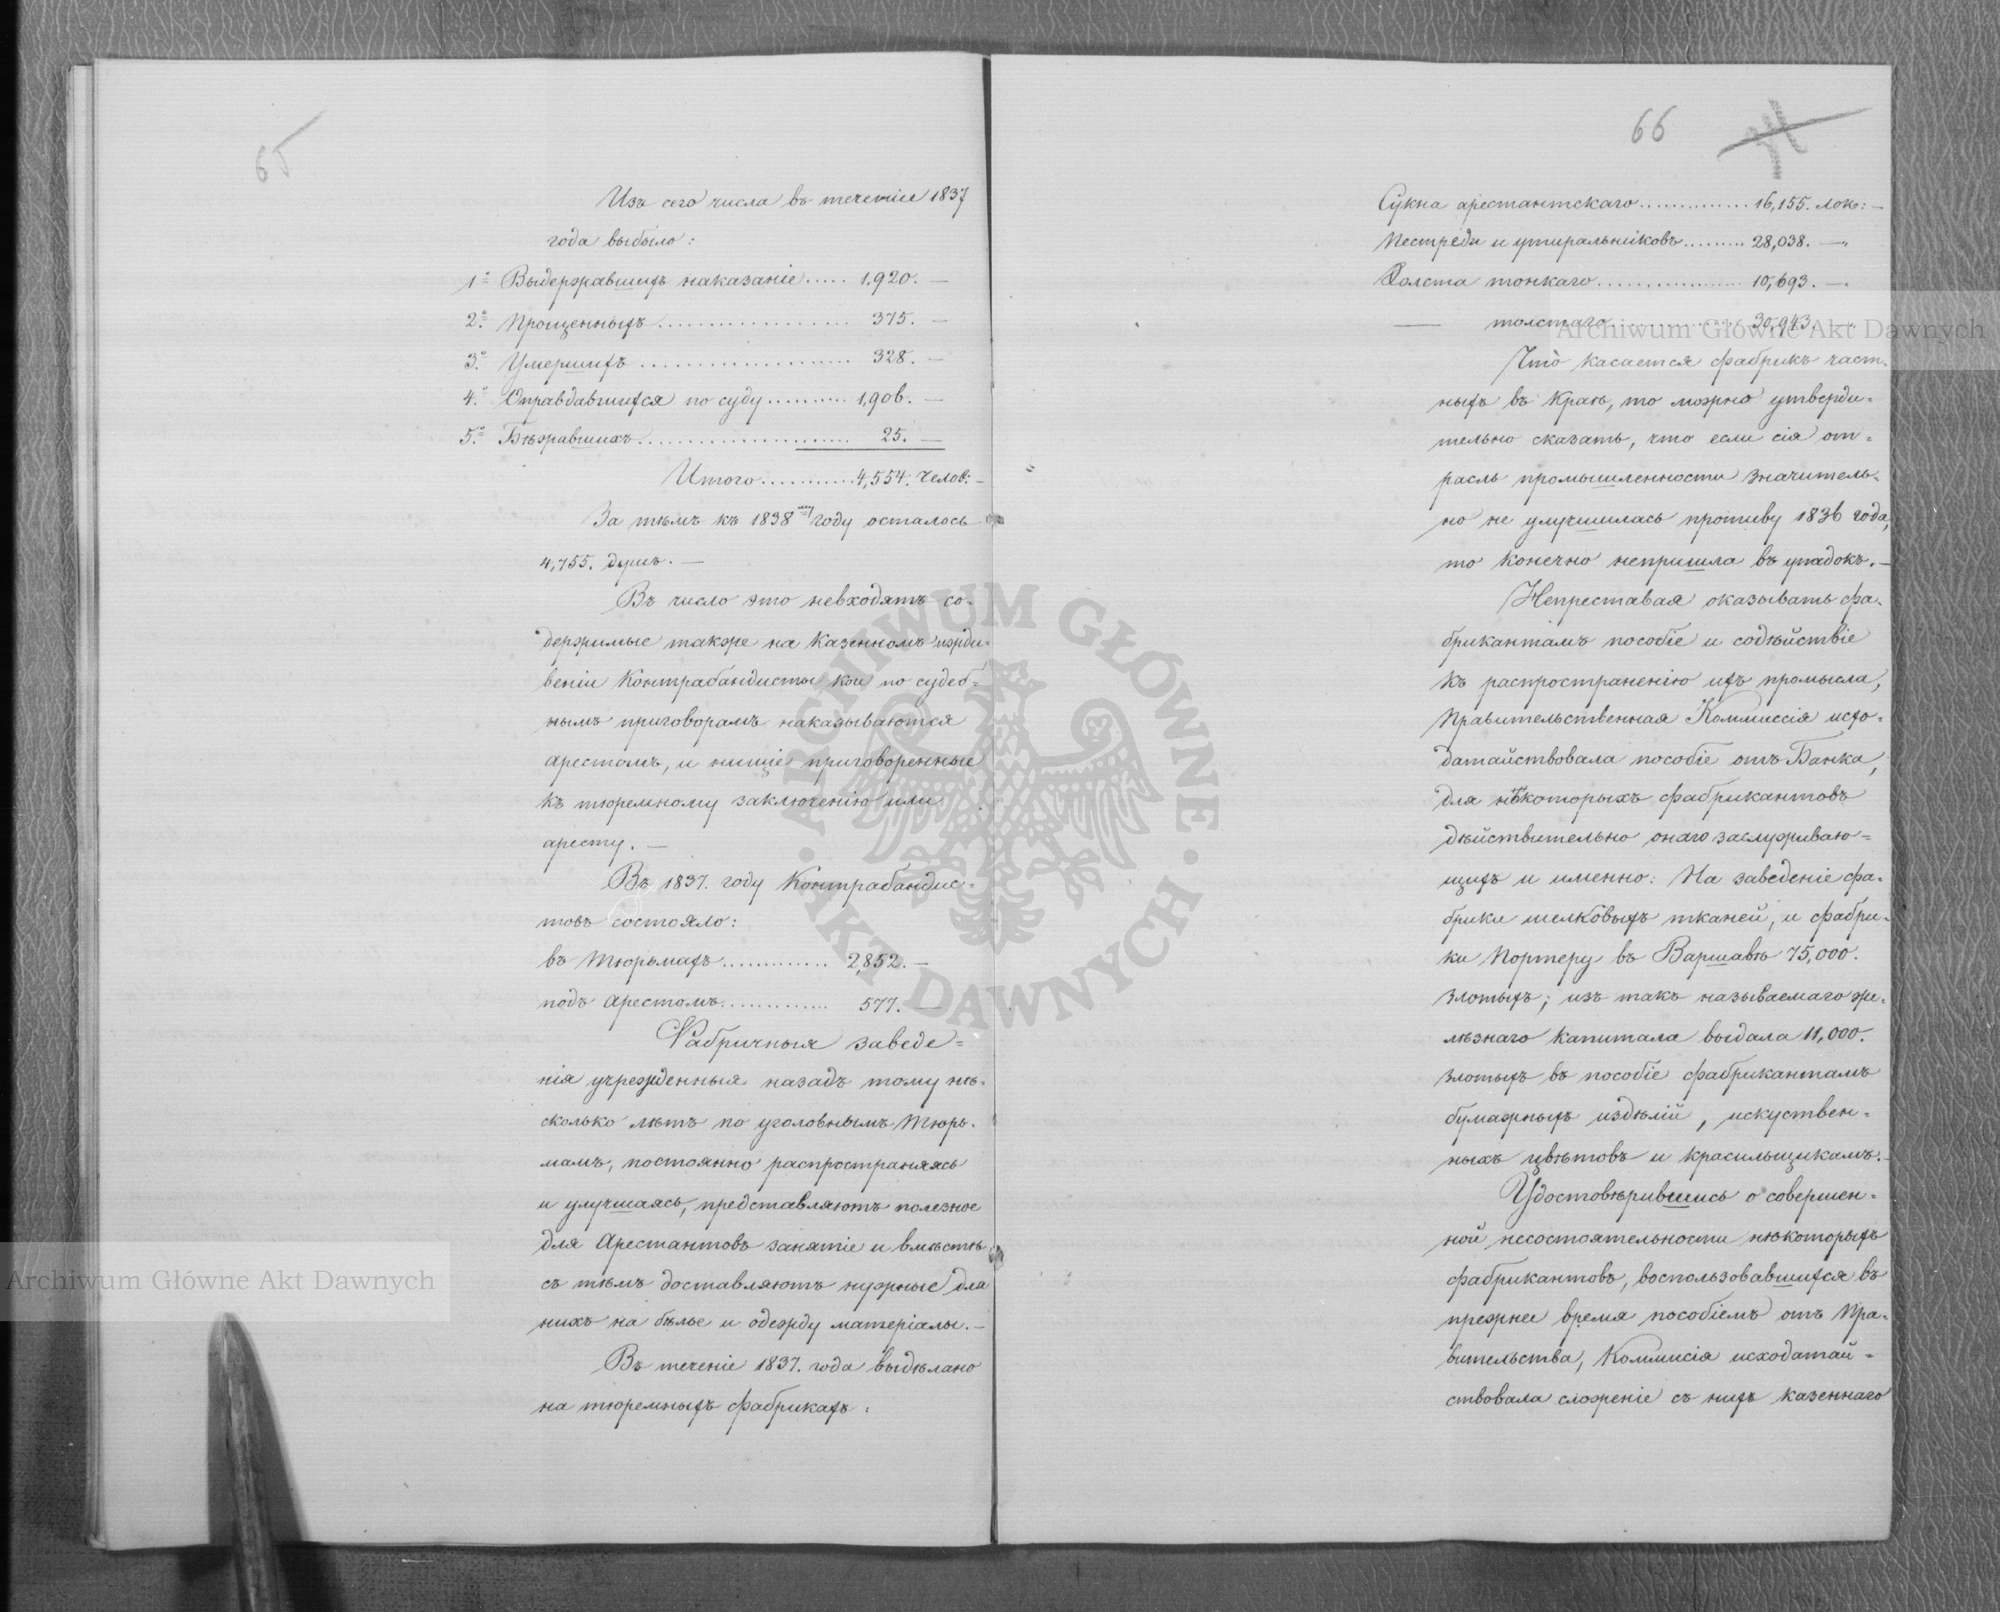 65
Изъ сего числа въ теченіе 1837
года выбыло:
1° Выдержавшихъ наказаніе..... 1,920. —
2° Прощенныхъ................... 375. —
3° Умершихъ..................... 328. —
4° Оправдавшихся по суду.......... 1,906. —
5° Бѣжавшихъ...................... 25. —
Итого...........4,554. Челов: —
За тѣмъ къ 1838му году осталось
4,755. душъ. —
Въ число это невходятъ со-
держимые также на Казенномъ ижди-
веніи Контрабандисты кои по судеб-
нымъ приговорамъ наказываются
арестомъ, и нищіе приговоренные
къ тюремному заключенію или
аресту. —
Въ 1837. году Контрабандис-
товъ состояло:
въ Тюрьмахъ............. 2,852. —
подъ Арестомъ............. 577. —
Фабричныя заведе-
нія учрежденныя назадъ тому нѣ-
сколько лѣтъ по уголовнымъ Тюрь-
мамъ, постоянно распространяясь
и улучшаясь, представляютъ полезное
для Арестантовъ занятіе и вмѣстѣ
съ тѣмъ доставляютъ нужные для
нихъ на бѣлье и одежду матеріалы. —
Въ теченіе 1837. года выдѣлано
на тюремныхъ фабрикахъ:
66
Сукна арестантскаго.............. 16,155. лок: —
Пестреди и утиральниковъ......... 28,038. — „
Холста тонкаго.................. 10,693. — „
— толстаго................. 30,943. — „
Что касается фабрикъ част-
ныхъ въ Краѣ, то можно утверди-
тельно сказать, что если сія от-
расль промышленности значитель-
но не улучшилась противу 1836 года,
то конечно непришла въ упадокъ. —
Непреставая оказывать фа-
брикантамъ пособіе и содѣйствіе
къ распространенію ихъ промысла,
Правительственная Коммиссія исхо-
датайствовала пособіе отъ Банка,
для нѣкоторыхъ фабрикантовъ
дѣйствительно онаго заслуживаю-
щихъ и именно: На заведеніе фа-
брики шелковыхъ тканей, и фабри-
ки Портеру въ Варшавѣ 75,000.
злотыхъ; изъ такъ называемаго же-
лѣзнаго Капитала выдала 11,000.
злотыхъ въ пособіе фабрикантамъ
бумажныхъ издѣлій, искуствен-
ныхъ цвѣтовъ и красильщикамъ. —
Удостовѣрившись о совершен-
ной несостоятельности нѣкоторыхъ
фабрикантовъ, воспользовавшихся въ
прежнее время пособіемъ отъ Пра-
вительства, Коммисія исходатай-
ствовала сложеніе съ нихъ казеннаго
Archiwum Główne Akt Dawnych
Archiwum Główne Akt Dawnych
ARCHIWUM GŁÓWNE · AKT DAWNYCH ·